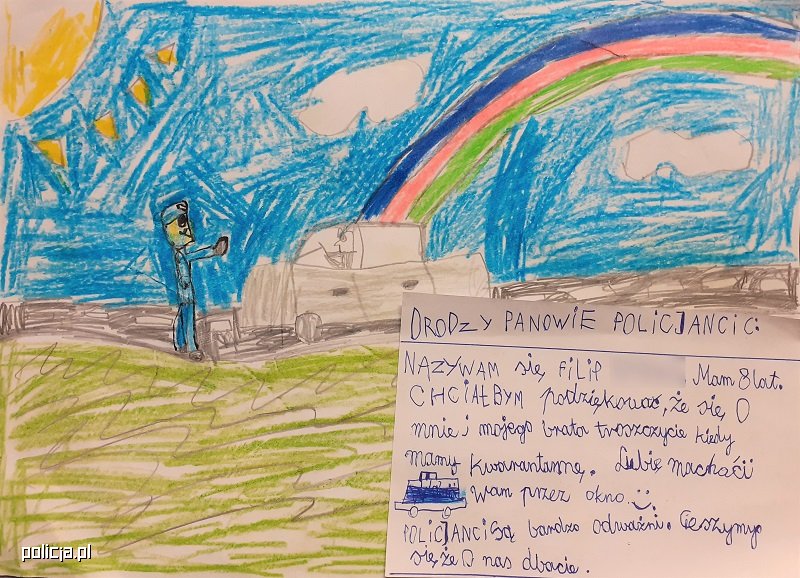 DRODZY PANOWIE POLICJANCIC:
NAZYWAM się FILIP Mam 8 lat.
CHCIAŁBYM podziękować, że się O
mnie i mojego brata troszczycie kiedy
mamy kwarantannę. Lubię machać ii
wam przez okno.
POLICJANCI Są bardzo odważni. Cieszymy
się że O nas dbacie.
policja.pl